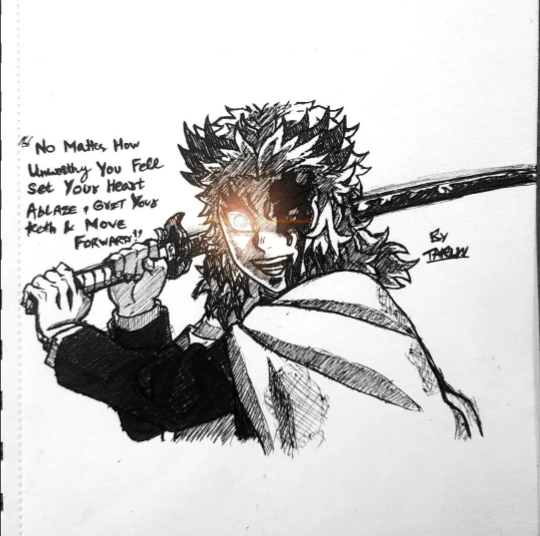 "No Matter How
Unworthy You Fell
Set Your Heart
Ablaze, Grit Your
Teeth & Move
Forward!!
By
Tarun